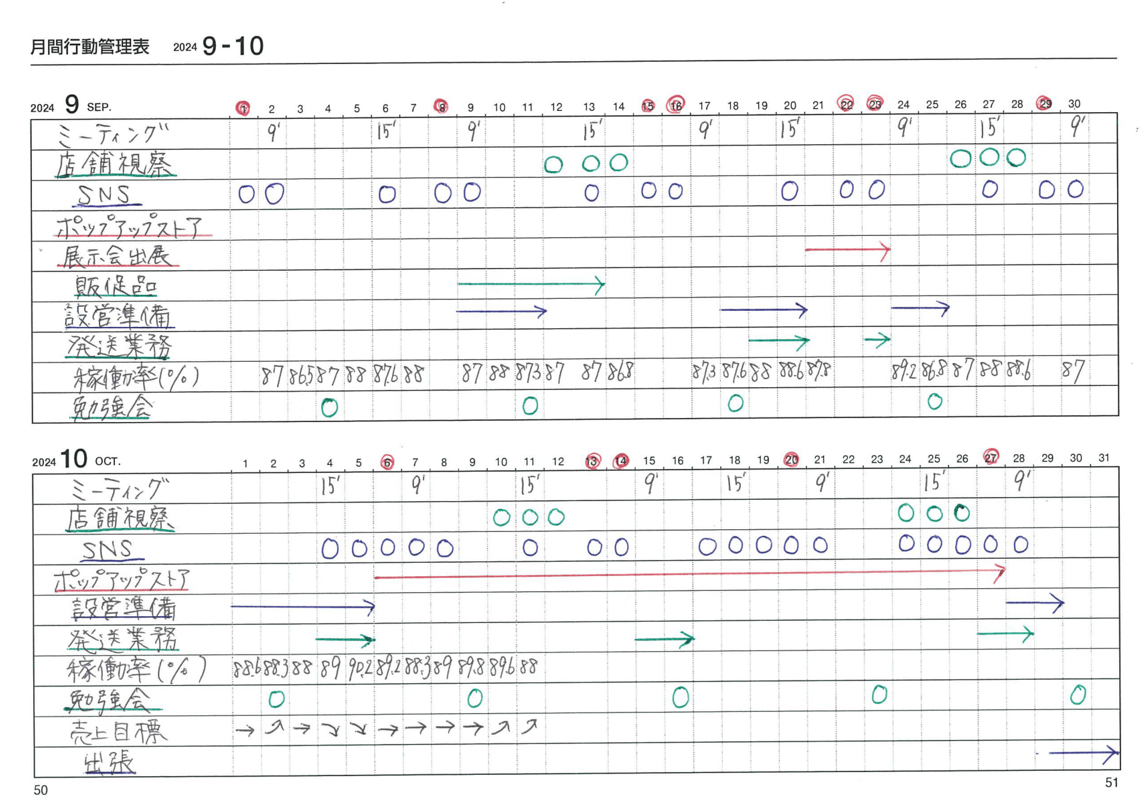 月間行動管理表 2024 9-10
2024 9 SEP. 1 2 3 4 5 6 7 8 9 10 11 12 13 14 15 16 17 18 19 20 21 22 23 24 25 26 27 28 29 30
ミーティング 9' 15' 9' 15' 9' 15' 9' 15' 9'
店舗視察 ○ ○ ○ ○ ○ ○
SNS ○ ○ ○ ○ ○ ○ ○ ○ ○ ○ ○ ○ ○ ○
ポップアップストア
展示会出展 →
販促品 →
設営準備 → → →
発送業務 → →
稼働率(%) 87 86.5 87 88 87.6 88 87 88 87.3 87 87 86.8 87.3 87.6 88 88.6 87.8 89.2 86.8 87 88 88.6 87
勉強会 ○ ○ ○ ○
2024 10 OCT. 1 2 3 4 5 6 7 8 9 10 11 12 13 14 15 16 17 18 19 20 21 22 23 24 25 26 27 28 29 30 31
ミーティング 15' 9' 15' 9' 15' 9' 15' 9'
店舗視察 ○ ○ ○ ○ ○ ○
SNS ○ ○ ○ ○ ○ ○ ○ ○ ○ ○ ○ ○ ○ ○ ○ ○ ○ ○
ポップアップストア →
設営準備 → →
発送業務 → → →
稼働率(%) 88.6 88.3 88 89 90.2 89.2 88.3 89 89.8 89.6 88
勉強会 ○ ○ ○ ○ ○
売上目標 → ↗ → ↘ ↘ → → → → ↗ ↗
出張 →
50 51